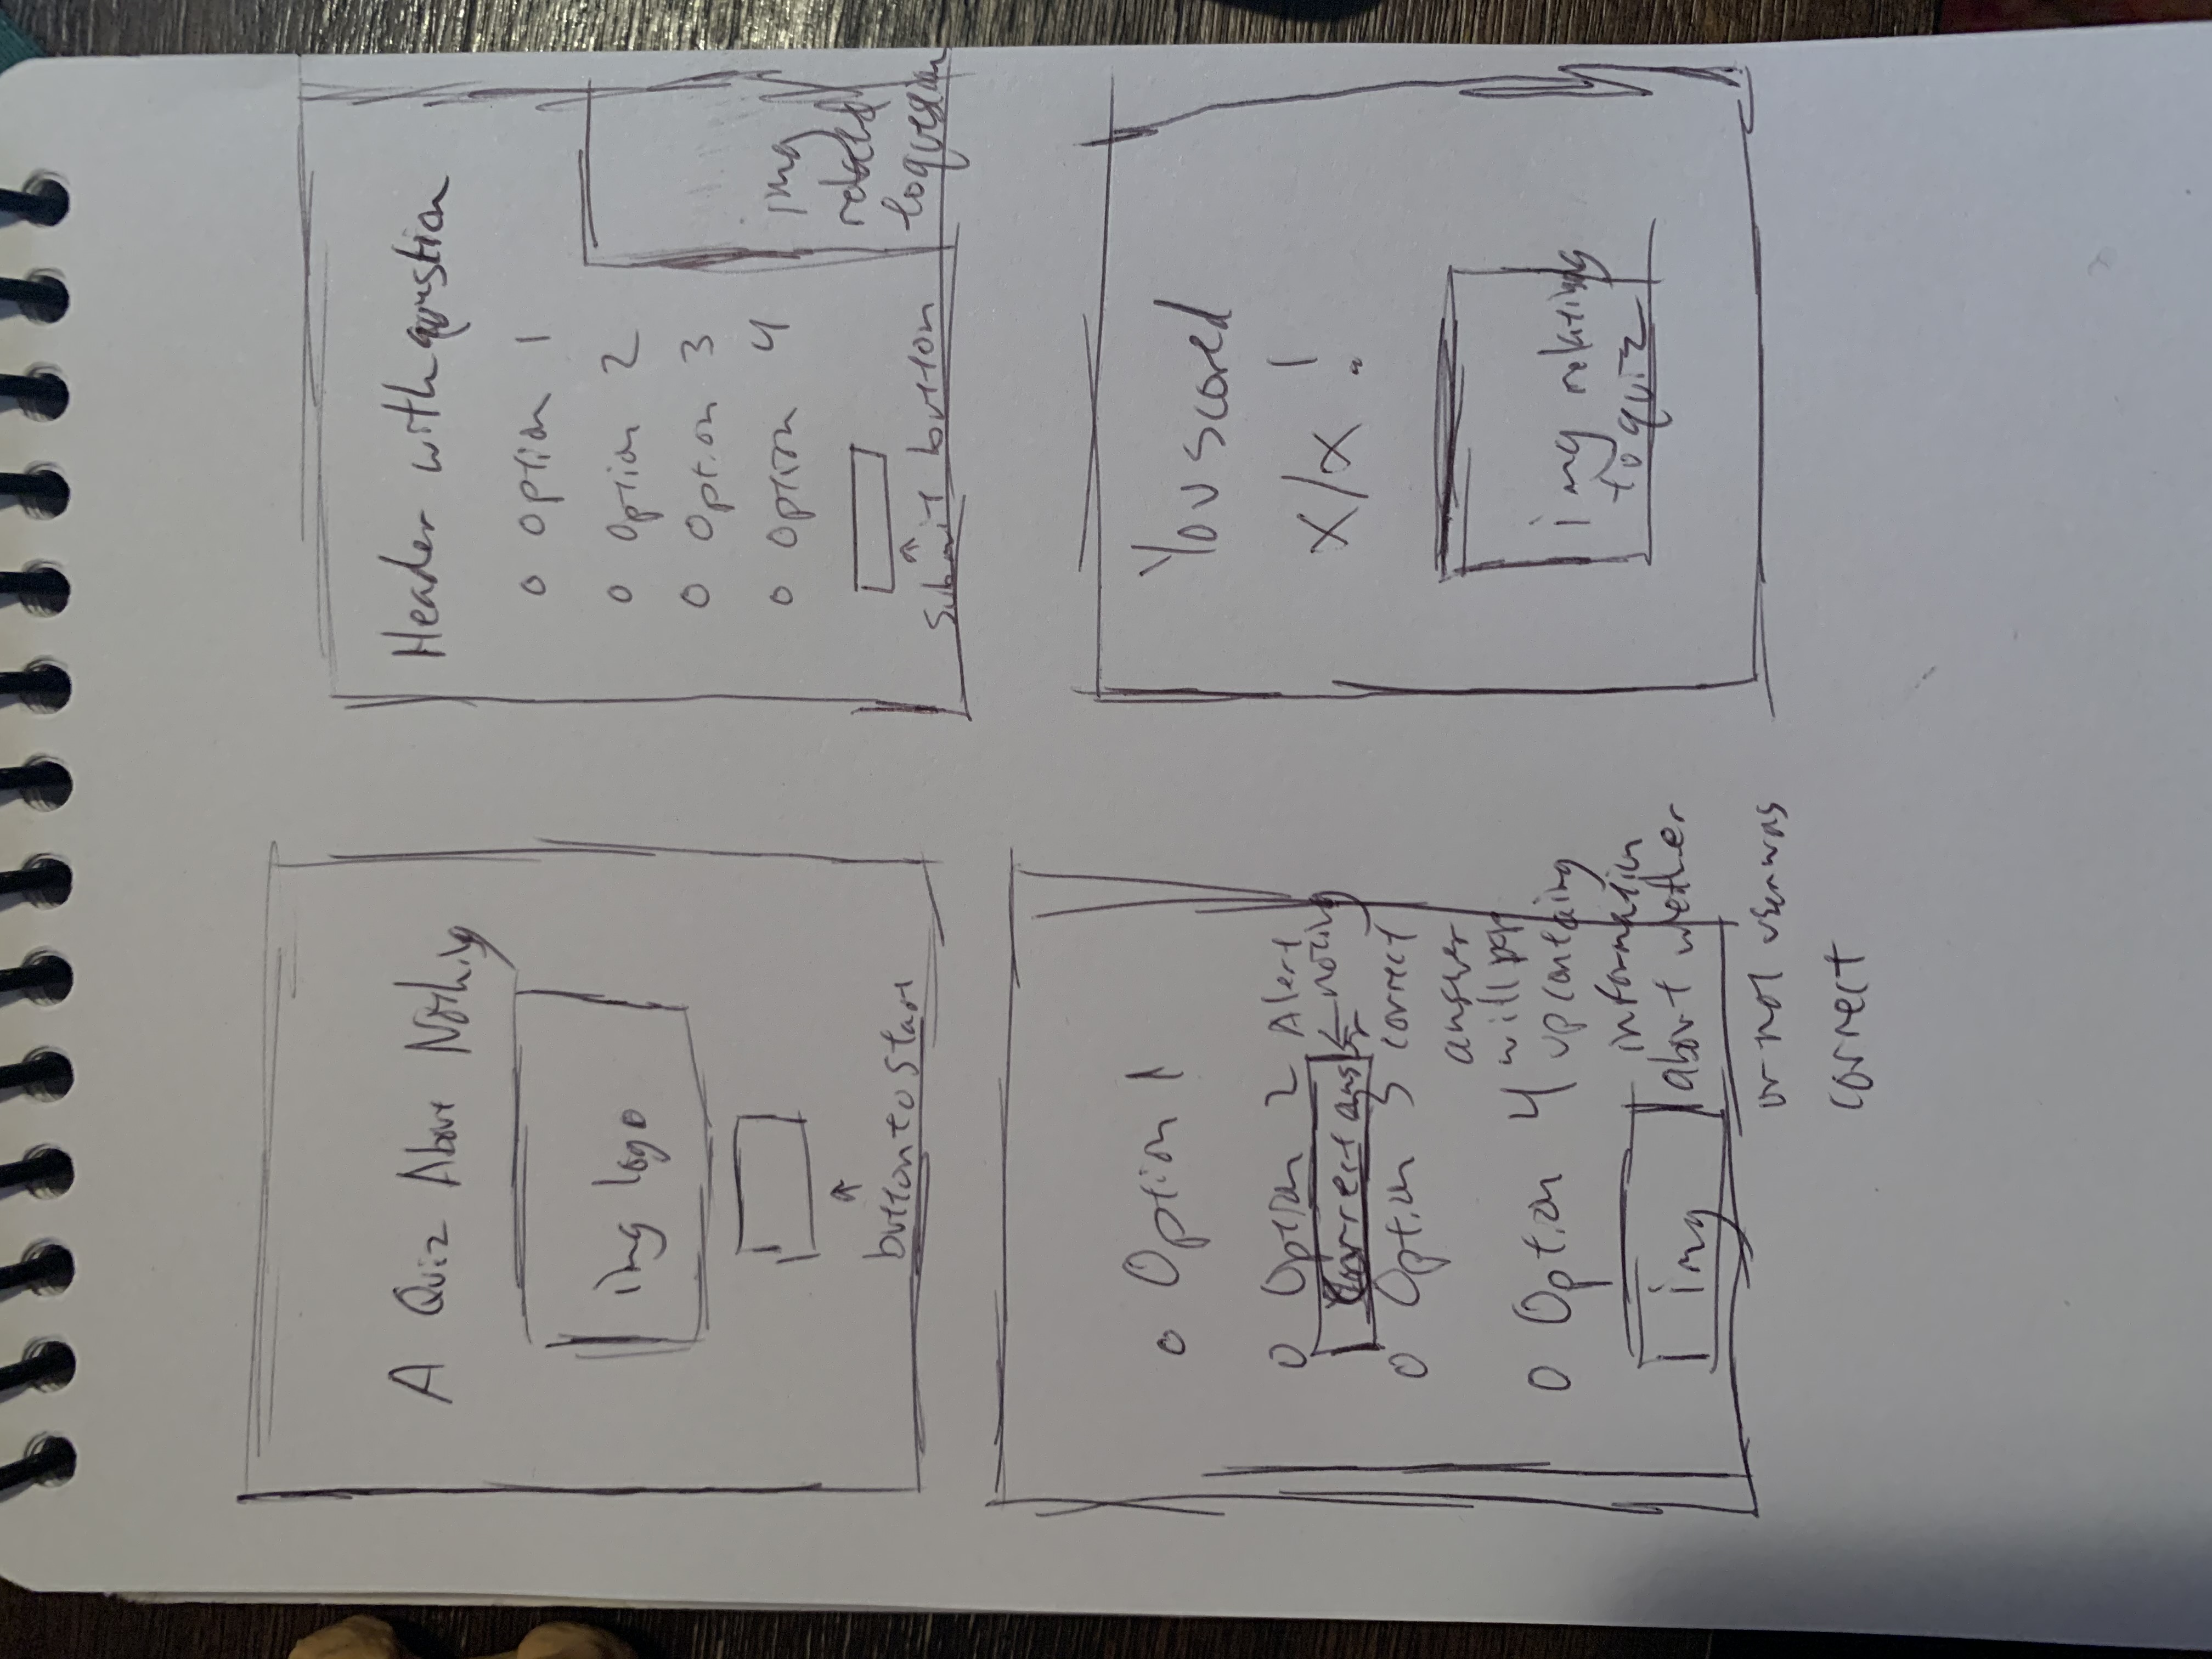 A Quiz About Nothing
img logo
button to start
Header with question
o option 1
o option 2
o option 3
o option 4
submit button
img
related
to question
o Option 1
o Option 2
correct ans
o Option 3
o Option 4
img
Alert
noting
correct
answer
will pop
up containg
information
about wether
or not user was
correct
You scored
x/x !
img relating
to quiz